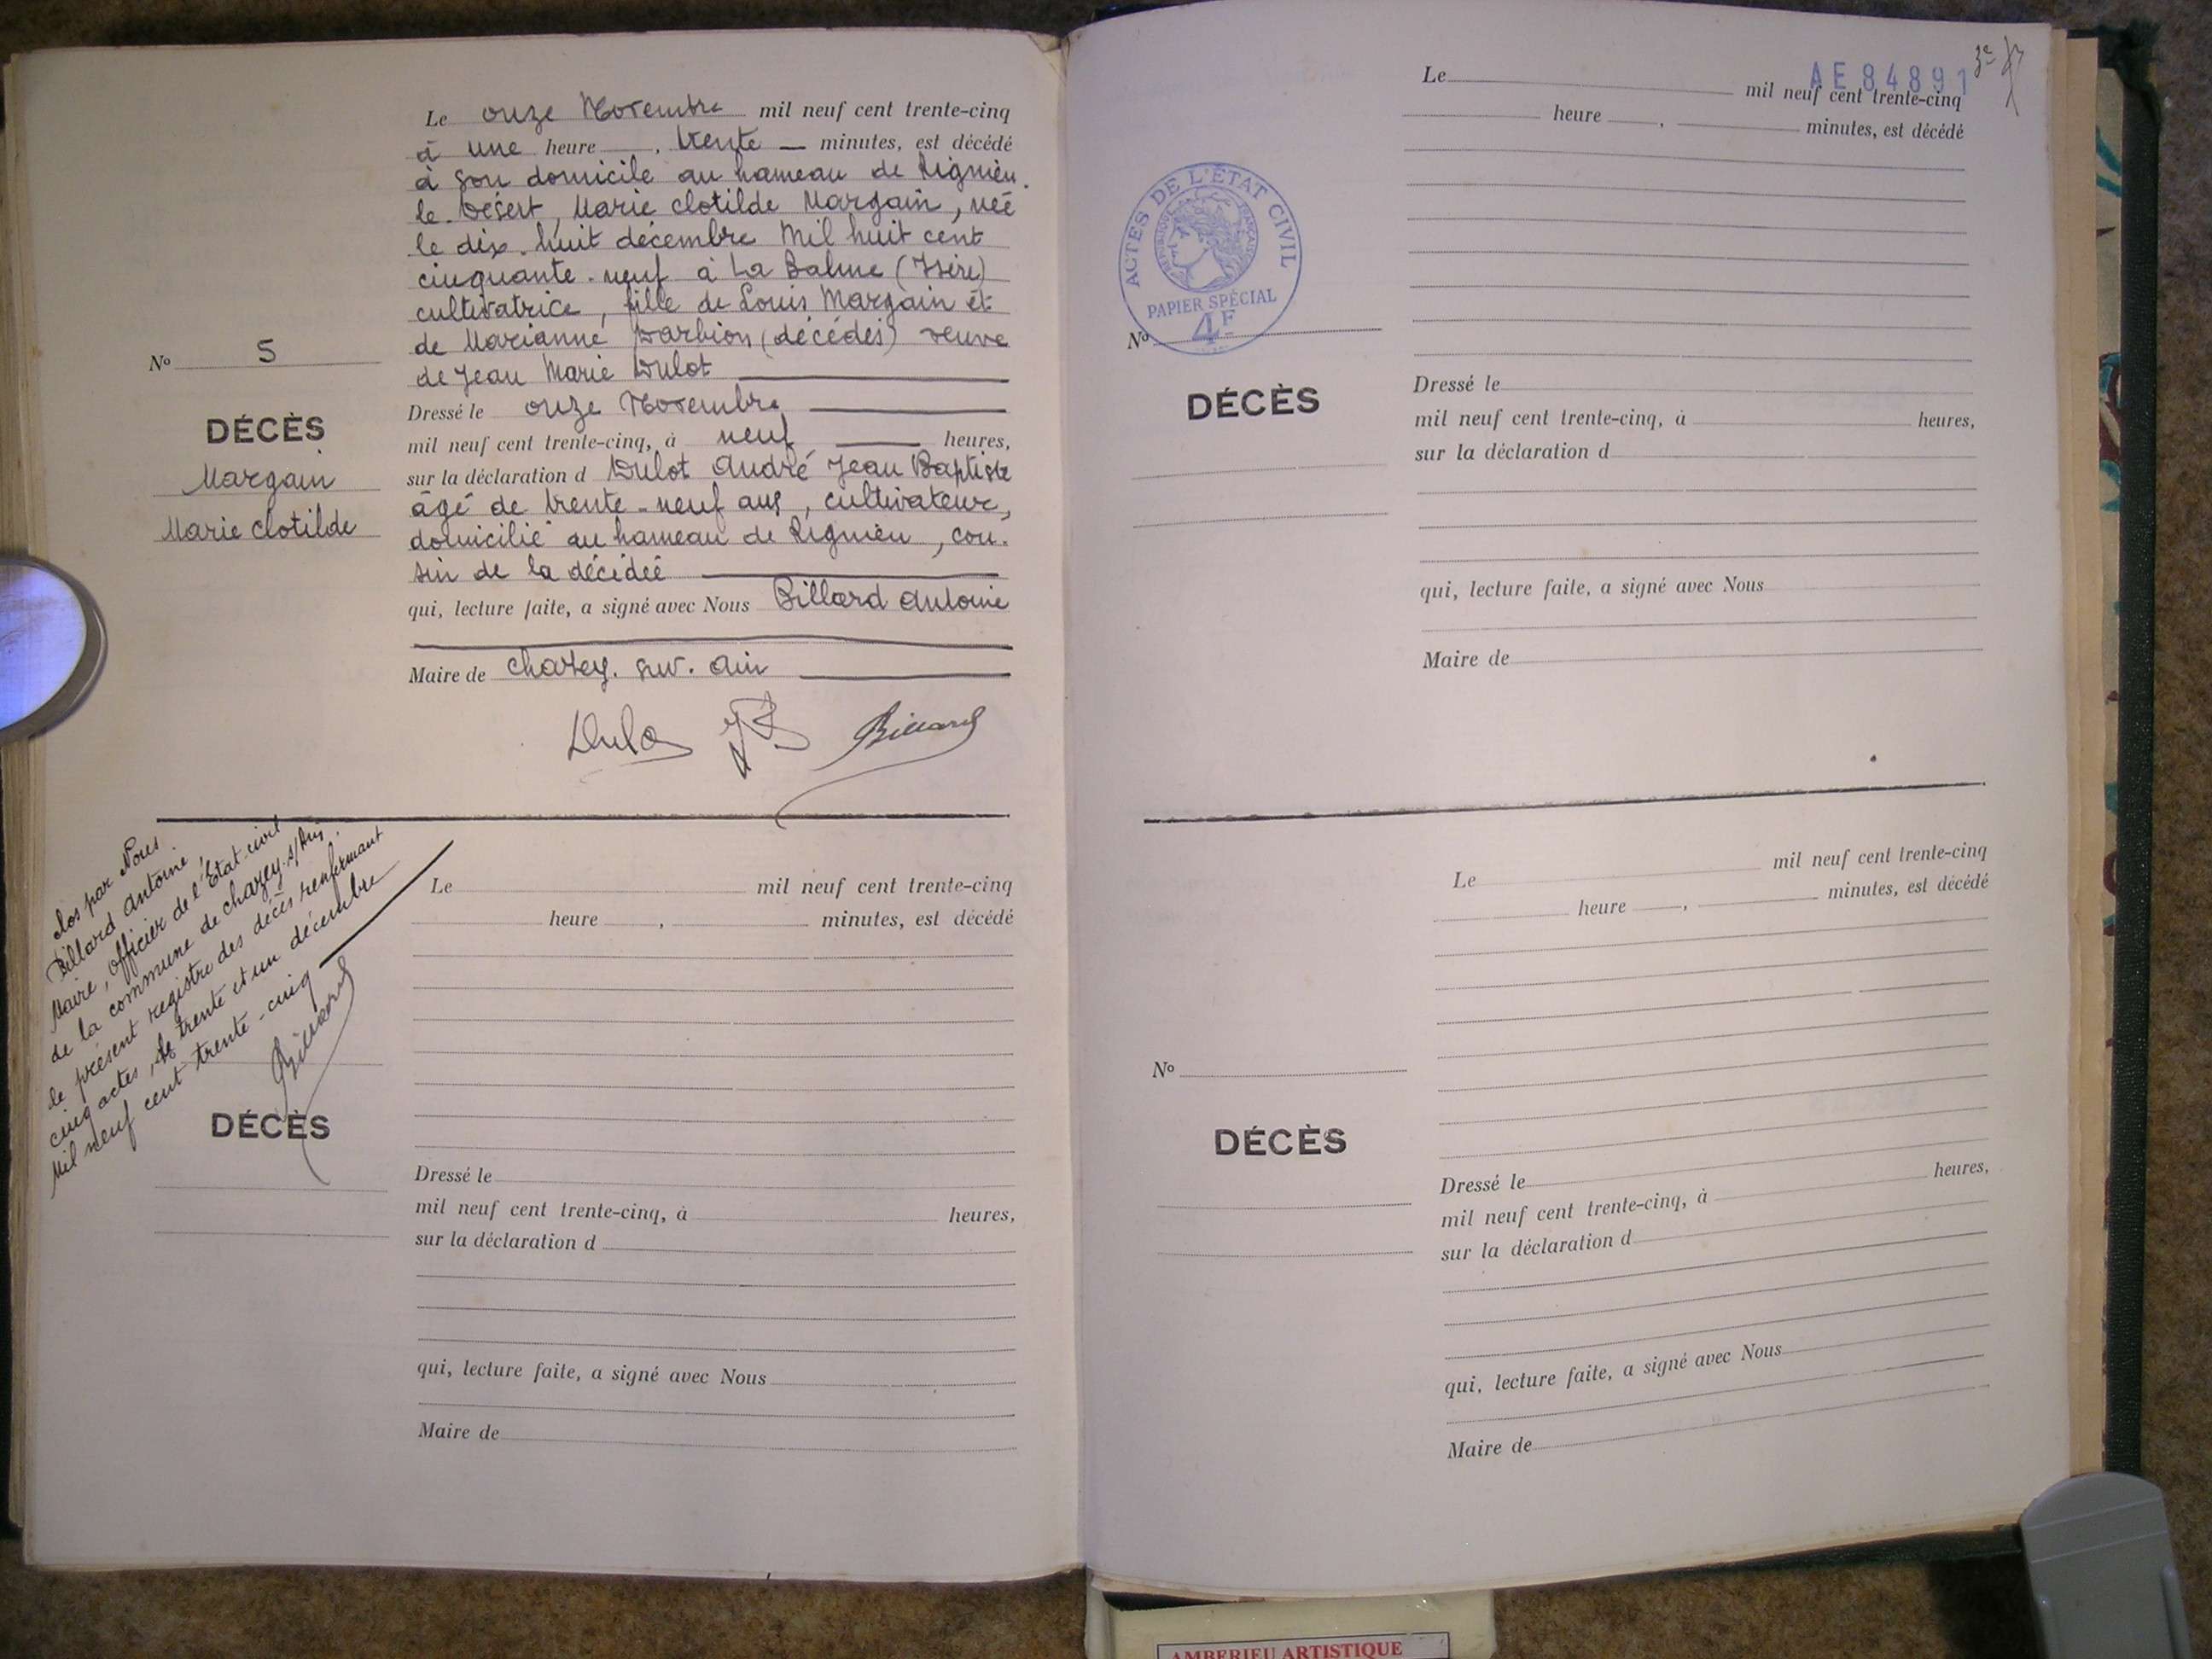 Le onze Novembre mil neuf cent trente-cinq
à une heure, trente minutes, est décédé
à son domicile au hameau de Rignieu
le Désert, Marie Clotilde Margain, née
le dix-huit décembre Mil huit cent
cinquante-neuf à La Balme (Isère)
cultivatrice, fille de Louis Margain et
de Marianne Darbion (décédés) veuve
de Jean Marie Dulot
Dressé le onze Novembre
mil neuf cent trente-cinq, à neuf heures,
sur la déclaration d Dulot André Jean Baptiste
âgé de trente-neuf ans, cultivateur,
domicilié au hameau de Rignieu, cou-
sin de la décédée
qui, lecture faite, a signé avec Nous Billard Antoine
Maire de Chazey-sur-Ain
Billard
No 5
DÉCÈS
Margain
Marie Clotilde
Clos par Nous
Billard Antoine,
Maire, officier de l'Etat-civil
de la commune de Chazey-s/Ain
le présent registre des décès renfermant
cinq actes, le trente et un décembre
Mil neuf cent trente-cinq
Billard
DÉCÈS
Le mil neuf cent trente-cinq
heure , minutes, est décédé
Dressé le
mil neuf cent trente-cinq, à heures,
sur la déclaration d
qui, lecture faite, a signé avec Nous
Maire de
AE84891
Le mil neuf cent trente-cinq
heure , minutes, est décédé
ACTES DE L'ÉTAT CIVIL
RÉPUBLIQUE FRANÇAISE
PAPIER SPÉCIAL
4F
No
DÉCÈS
Dressé le
mil neuf cent trente-cinq, à heures,
sur la déclaration d
qui, lecture faite, a signé avec Nous
Maire de
Le mil neuf cent trente-cinq
heure , minutes, est décédé
No
DÉCÈS
Dressé le
mil neuf cent trente-cinq, à heures,
sur la déclaration d
qui, lecture faite, a signé avec Nous
Maire de
AMBERIEU ARTISTIQUE